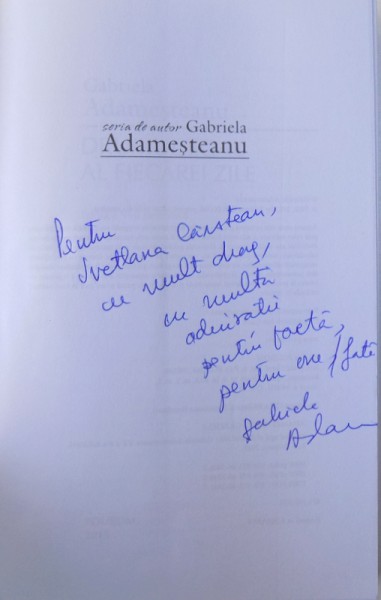 seria de autor Gabriela
Adameșteanu
Pentru
Svetlana Cârstean,
cu mult drag,
cu multă
admirație
pentru poetă,
pentru
Gabriela
Adam